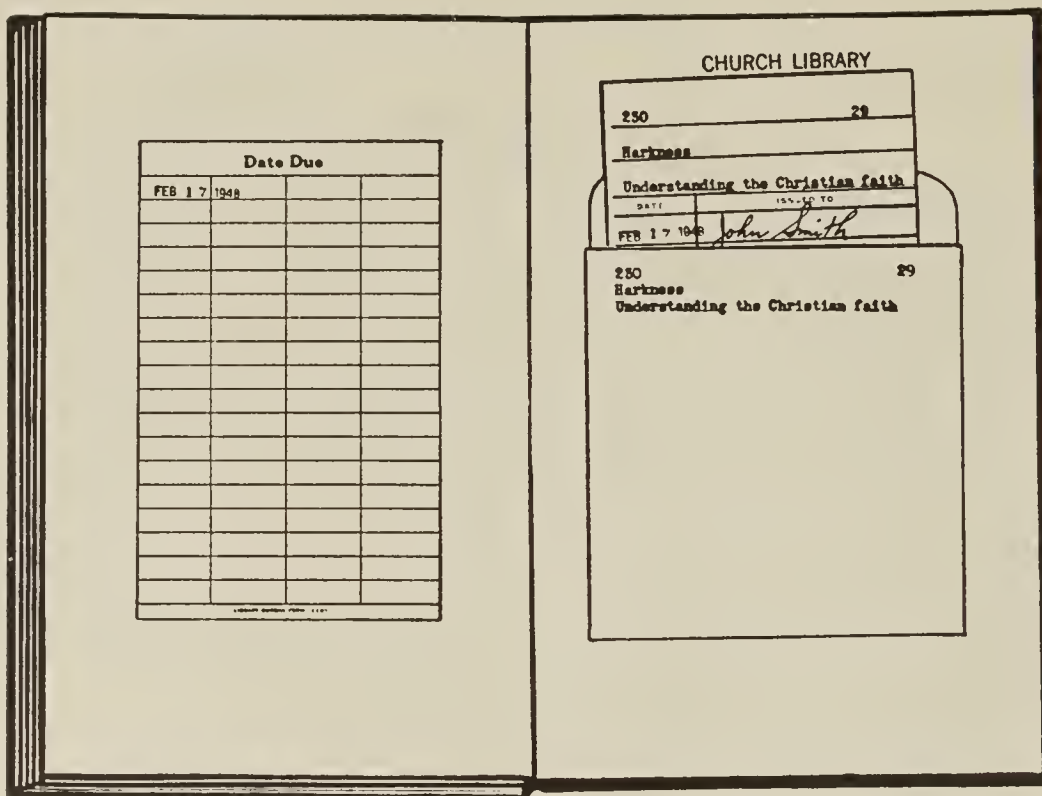 Date Due
FEB 17 1948
CHURCH LIBRARY
230 29
Harkness
Understanding the Christian faith
DATE ISSUED TO
FEB 17 1948 John Smith
230 29
Harkness
Understanding the Christian faith